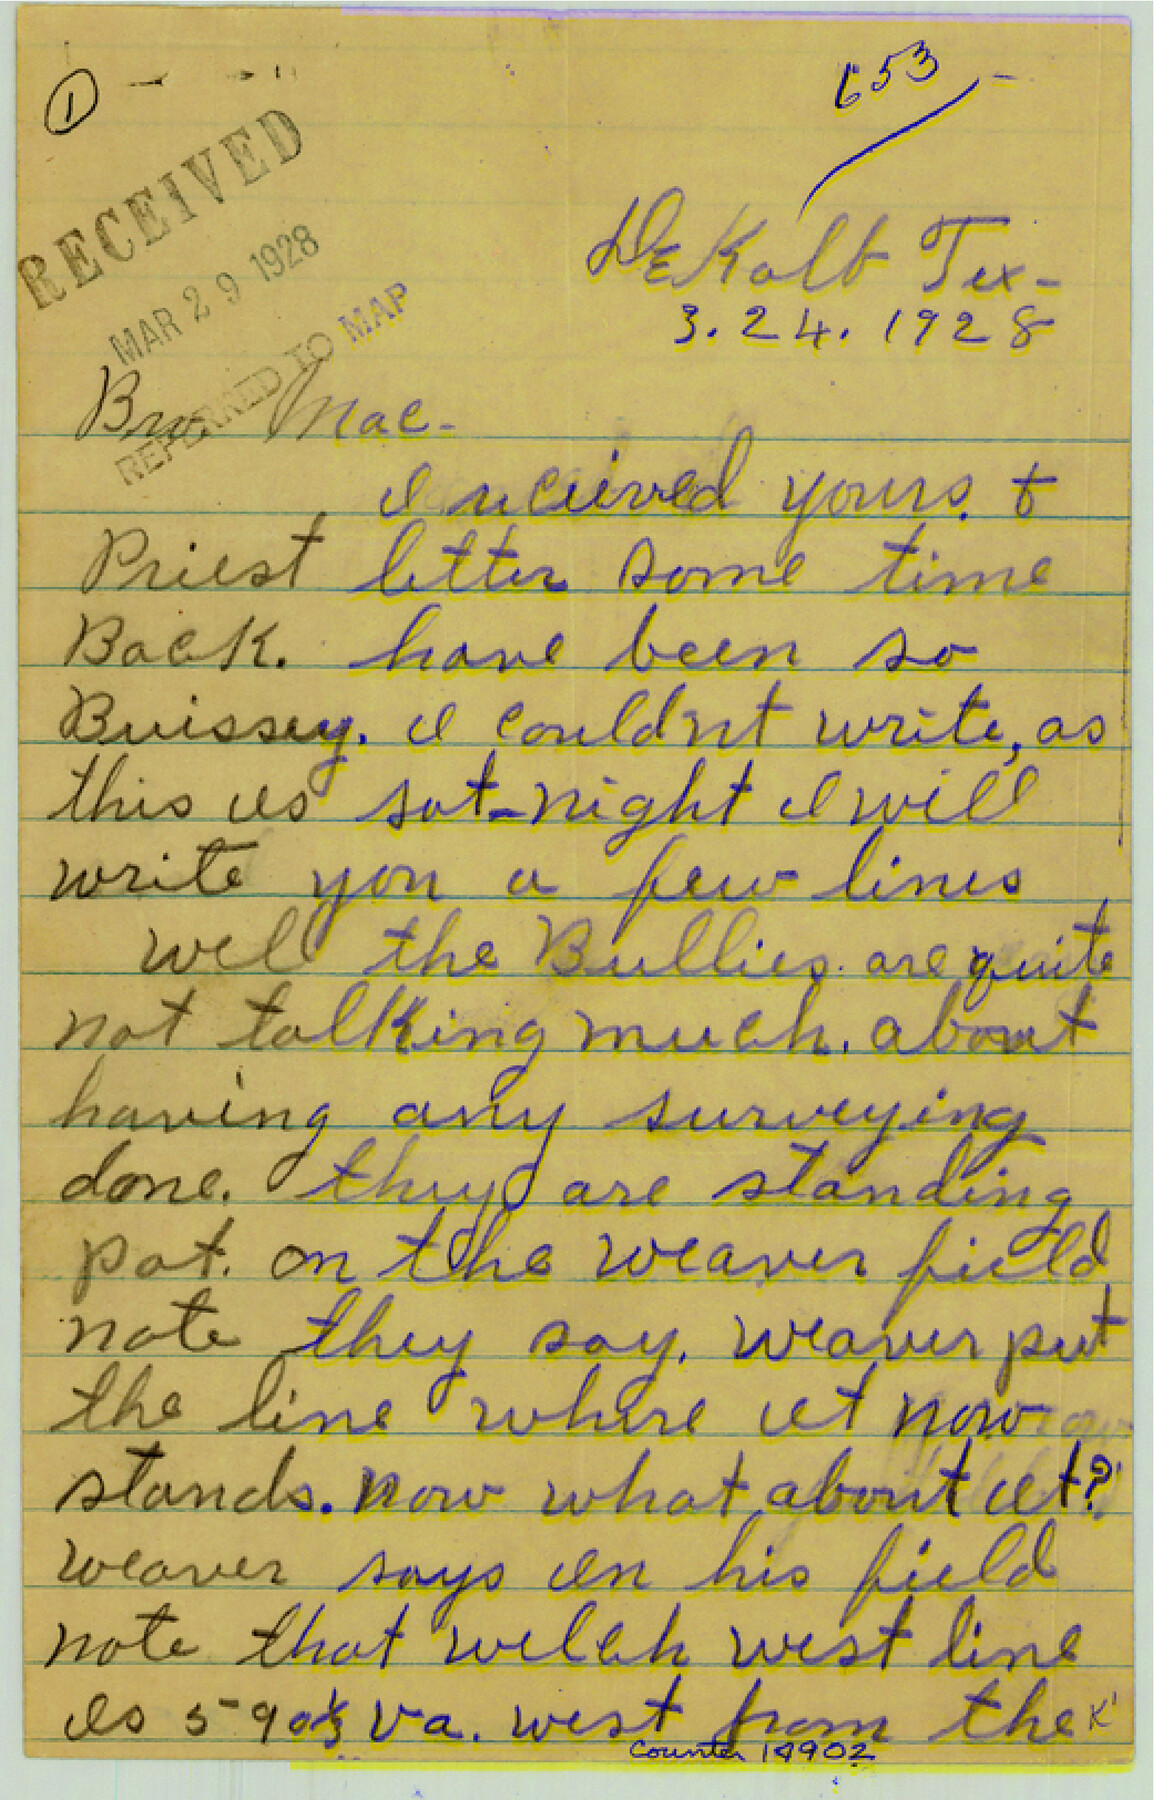 1
653
RECEIVED
MAR 29 1928
REFERRED TO MAP
DeKalb Tex-
3.24.1928
Bro Mac-
I received yours &
Priest letter some time
Back. have been so
Buissey. I couldnt write, as
this is sat-night I will
write you a few lines
well the Bullies are quite
not talking much. about
having any surveying
done. they are standing
pat. on the weaver field
note they say. weaver put
the line where it now
stands. Now what about it?
weaver says in his field
note that welch west line
is 590⅓ va. west from the
Counter 14902